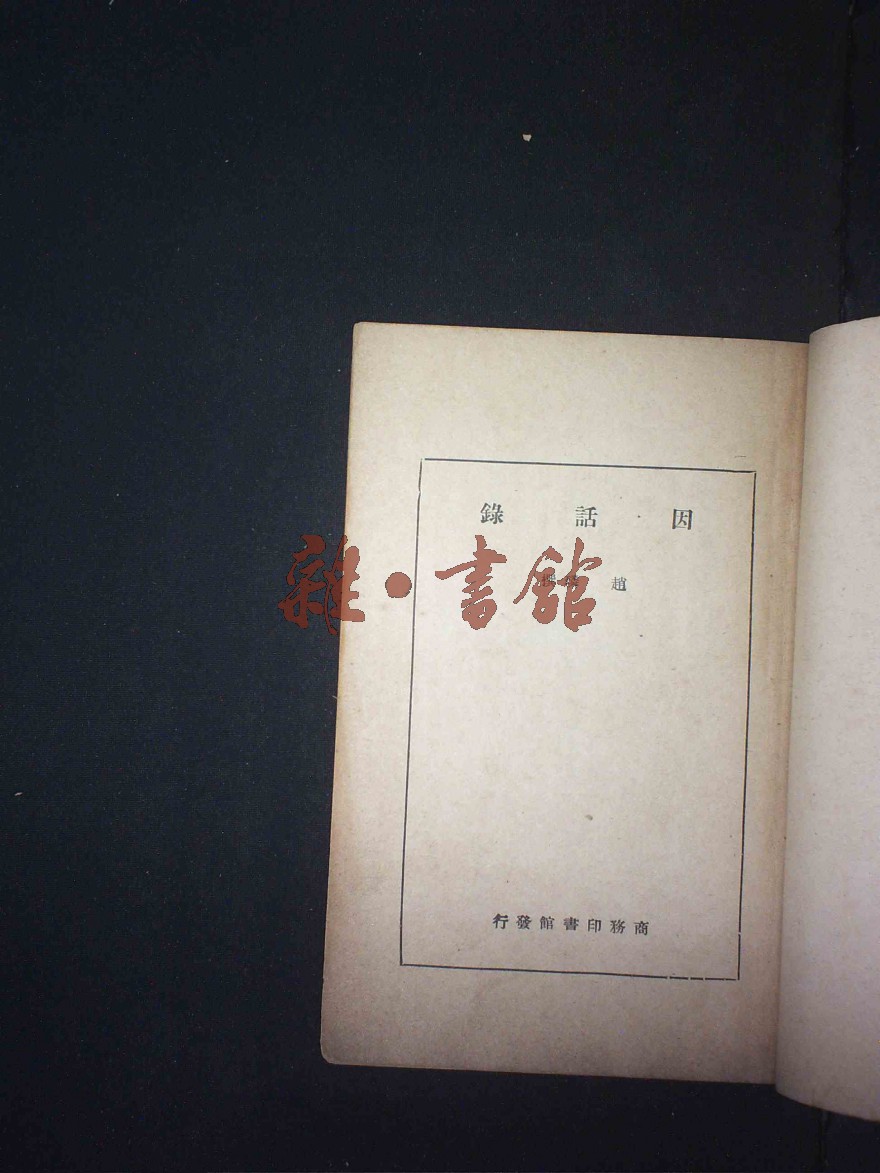 因話錄
趙
商務印書館發行
雜·書館